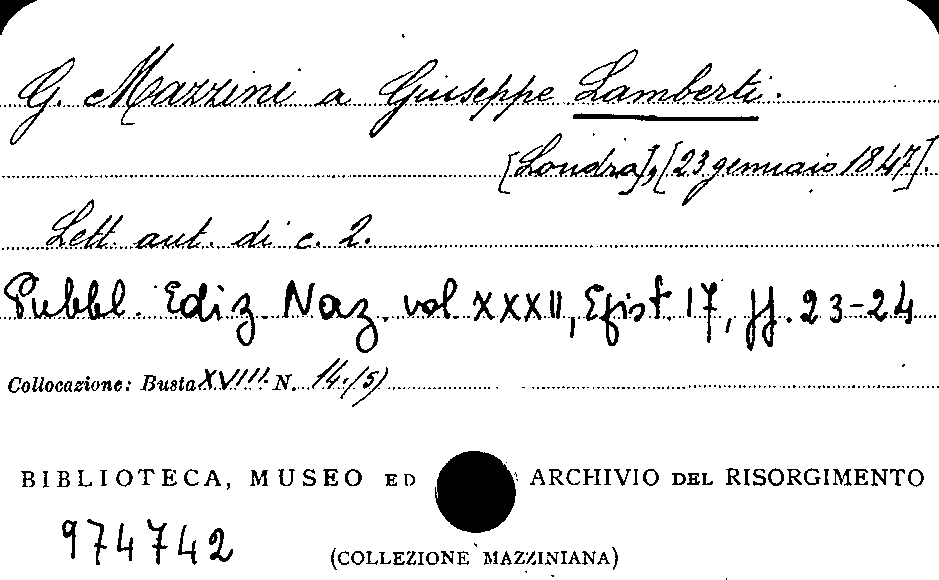 G. Mazzini a Giuseppe Lamberti.
[Londra], [23 gennaio 1847].
Lett. aut. di c. 2.
Pubbl. Ediz. Naz. vol XXXII, Epist. 17, pp. 23-24
Collocazione: Busta XVIII N. 14.(5)
BIBLIOTECA, MUSEO ED ARCHIVIO DEL RISORGIMENTO
974742
(COLLEZIONE MAZZINIANA)